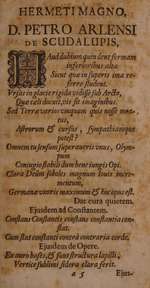 HERMETI MAGNO,
D. PETRO ARLENSI
DE SCUDALUPIS,
HAud dubium quin dent formam inferioribus alta
Sicut quæ in superis ima re-
ferre studeat.
in placet rigida sed, recta,
Quæ cæli ducat, vis sit imaginibus.
Sed Terræ varios cunquam quis nosse
tus,
Astrorum & cursus, sympathiamque
potest?
Omnem tu sensum superaveris unus, Olym-
pum
Coniugio stabili dum bene iungis Opi.
Clara Deûm soboles magnum Iovis incre-
mentum,
Germane uteris maximus & hucipus est.
Dat cura quietem.
Eiusdem ad Constantem.
Constans Constantis constans constantia con-
stat,
Cum stat constanti contra contraria corde,
Eiusdem de Opere.
Ex auro bases, & sunt structura lapilli,
Vertice sublimi sidera clara ferit.
a 5 Eius-